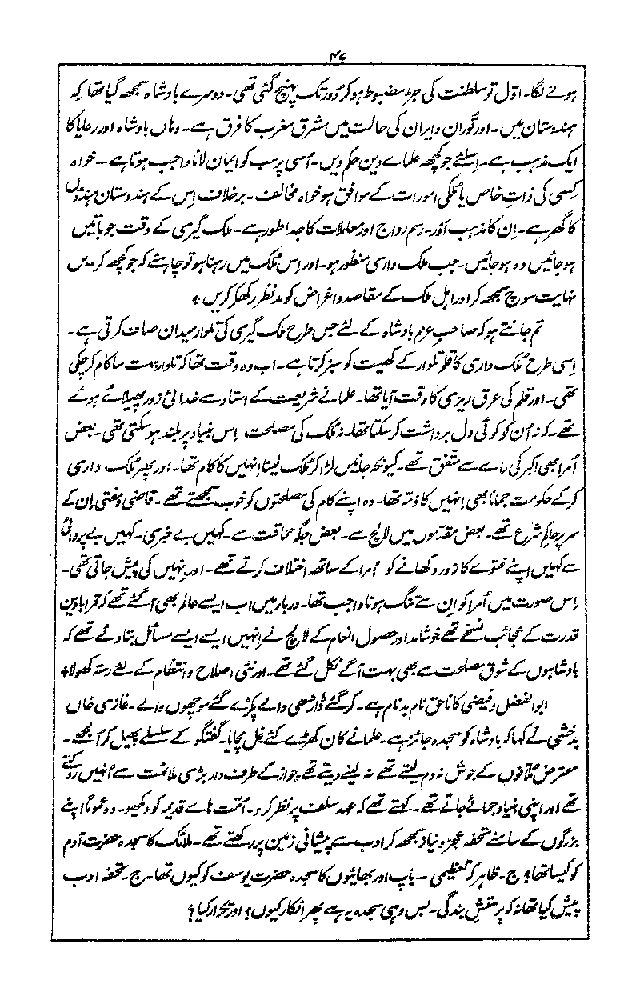 ۴۷
ہونے لگا۔ اوّل تو سلطنت کی جڑ مضبوط ہو کر دور تک پہنچ گئی تھی۔ دوسرے بادشاہ سمجھ گیا تھا کہ
ہندوستان میں۔ اور توران و ایران کی حالت میں مشرق مغرب کا فرق ہے۔ وہاں بادشاہ اور رعایا کا
ایک مذہب ہے۔ اسلئے جو کچھ علمائے دین حکم دیں۔ اُسی پر سب کو ایمان لانا واجب ہوتا ہے۔ خواہ
کسی کی ذاتِ خاص یا ملکی امورات کے موافق ہو خواہ مخالف۔ برخلاف اِس کے ہندوستان ہندوں
کا گھر ہے۔ اِن کا مذہب اَور۔ رسم رواج اور معاملات کا جدا طور ہے۔ ملک گیری کے وقت جو باتیں
ہو جائیں وہ ہو جائیں۔ جب ملک داری منظور ہو۔ اور اِس ملک میں رہنا ہو تو چاہئے کہ جو کچھ کریں
نہایت سوچ سمجھ کر اور اہل ملک کے مقاصد و اغراض کو مدنظر رکھ کر کریں ٭
تم جانتے ہو کہ صاحب عزم بادشاہ کے لئے جس طرح ملک گیری کی تلوار میدان صاف کرتی ہے۔
اِسی طرح ملک داری کا قلم تلوار کے کھیت کو سبز کرتا ہے۔ اب وہ وقت تھا کہ تلوار بہت سا کام کر چکی
تھی۔ اور قلم کی عرق ریزی کا وقت آیا تھا۔ علما نے شریعت کے اسناد سے خدائی زور پھیلائے ہوئے
تھے۔ کہ نہ اُن کو کوئی دل برداشت کر سکتا تھا۔ نہ ملک کی مصلحت اِس بنیاد پر بلند ہو سکتی تھی۔ بعض
اُمرا بھی اکبر کی رائے سے متفق تھے۔ کیونکہ جانیں لڑا کر ملک لینا اُنہیں کا کام تھا۔ اور پھر ملک داری
کر کے حکومت جمانا بھی اُنہیں کا ذمہ تھا۔ وہ اپنے کام کی مصلحتوں کو خوب سمجھتے تھے۔ قاضی و مفتی اِن کے
سر پر حاکم شرع تھے۔ بعض مقدموں میں لالچ سے۔ بعض جگہ حماقت سے۔ کہیں بے خبری۔ کہیں بے پروائی
سے کہیں اپنے فتوے کا زور دکھانے کو اُمرا کے ساتھ اختلاف کرتے تھے۔ اور انہیں کی پیش جاتی تھی۔
اِس صورت میں اُمرا کو اِن سے تنگ ہونا واجب تھا۔ دربار میں اب ایسے عالم بھی آ گئے تھے کہ قرابادین
قدرت کے عجائب نسخے تھے خوشامد اور حصول انعام کے لالچ نے انہیں ایسے ایسے مسائل بتا دئے تھے کہ
بادشاہوں کے شوق مصلحت سے بھی بہت آگے نکل گئے تھے۔ اور نئی اصلاح و انتظام کے لئے رستہ کھولا ٭
ابوالفضل و فیضی کا ناحق نام بدنام ہے۔ کر گئے ڈاڑھی والے پکڑے گئے مونچھوں والے۔ غازی خاں
بدخشی نے کہا کہ بادشاہ کو سجدہ جائز ہے۔ علما نے کان کھڑے کئے غل مچایا۔ گفتگو کے سلسلے پھیل کر اُلجھے۔
معترض ملانوں کے جوش نہ دم لیتے تھے نہ لینے دیتے تھے جواز کے طرف دار بڑی ملائمت سے اُنہیں روکتے
تھے اور اپنی بنیاد جمائے جاتے تھے۔ کہتے تھے کہ عہد سلف پر نظر کرو۔ اُمت ہائے قدیم کو دیکھو۔ وہ عموماً اپنے
بزرگوں کے سامنے تحفہ عجز و نیاز سمجھ کر ادب سے پیشانی زمین پر رکھتے تھے۔ ملائک کا سجدہ حضرت آدم
کو کیسا تھا؟ ج۔ ظاہر کہ تعظیمی۔ باپ اور بھائیوں کا سجدہ حضرت یوسف کو کیوں تھا۔ ج۔ تحفہ ادب
پیش کیا تھا نہ کہ پرستش بندگی۔ بس وہی سجدہ یہ ہے پھر انکار کیوں؟ اور تکرار کیا؟